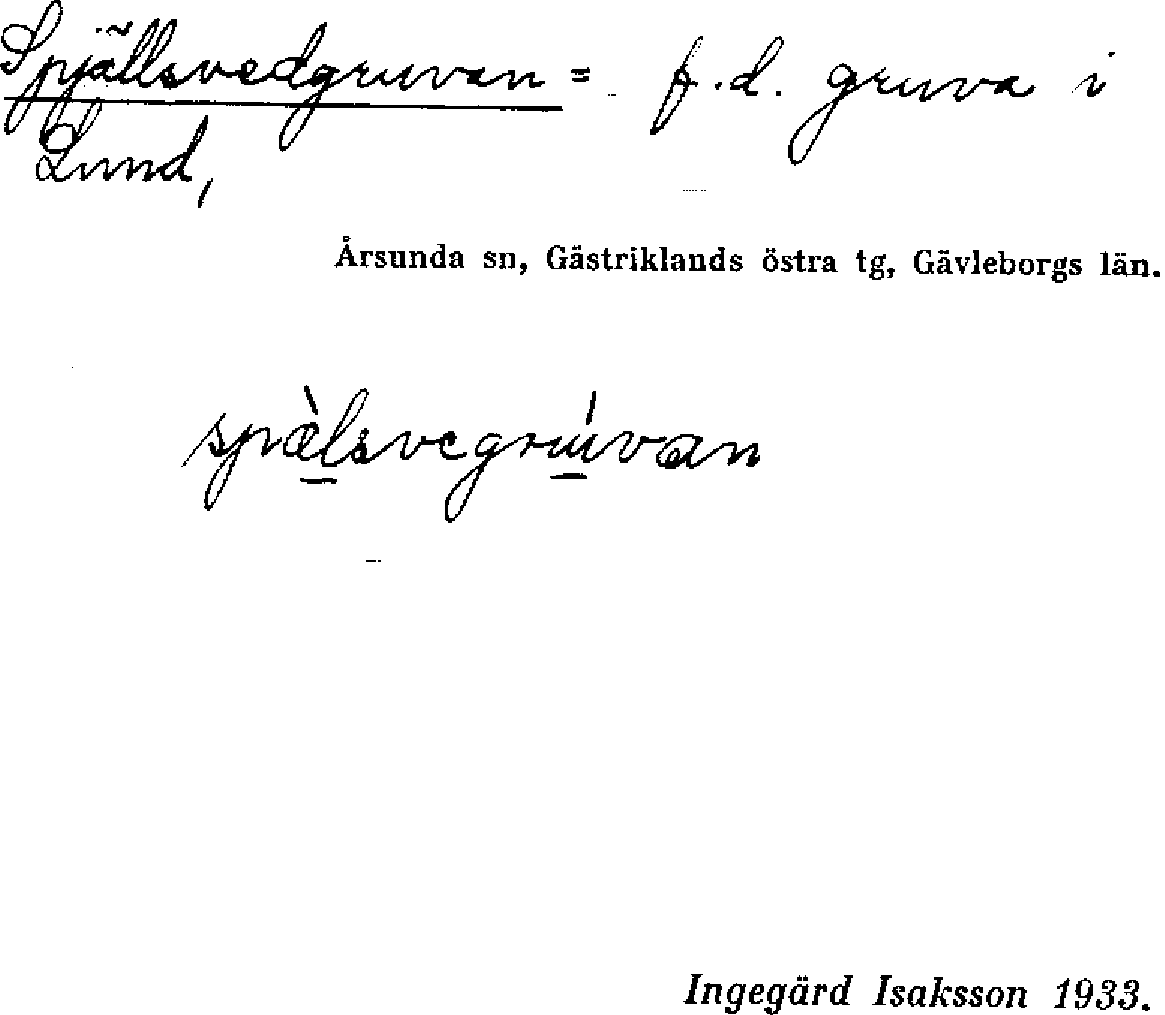 Spjällsvedgruvan = f.d. gruva i
Lund,
Årsunda sn, Gästriklands östra tg, Gävleborgs län.
spæ̀lsvegrúvan
Ingegärd Isaksson 1933.